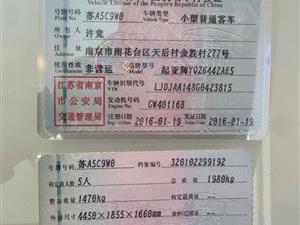 Vehicle License of the People's Republic of China
号牌号码 苏A5C9W0 车辆类型 小型普通客车
Plate No. Vehicle Type
所有人 许宽
Owner
住址 南京市雨花台区天后村金胜村277号
Address
使用性质 非营运 品牌型号 起亚牌YQZ6442AE5
Use Character Model
江苏省南京市公安局交通管理局
车辆识别代号 LJDJAA148G0423815
VIN
发动机号码 GW401168
Engine No.
注册日期 2016-01-19 发证日期 2016-01-19
Register Date Issue Date
号牌号码 苏A5C9W0 档案编号 320102299192
核定载人数 5人 总质量 1980kg
整备质量 1470kg 核定载质量
外廓尺寸 4450×1855×1660mm